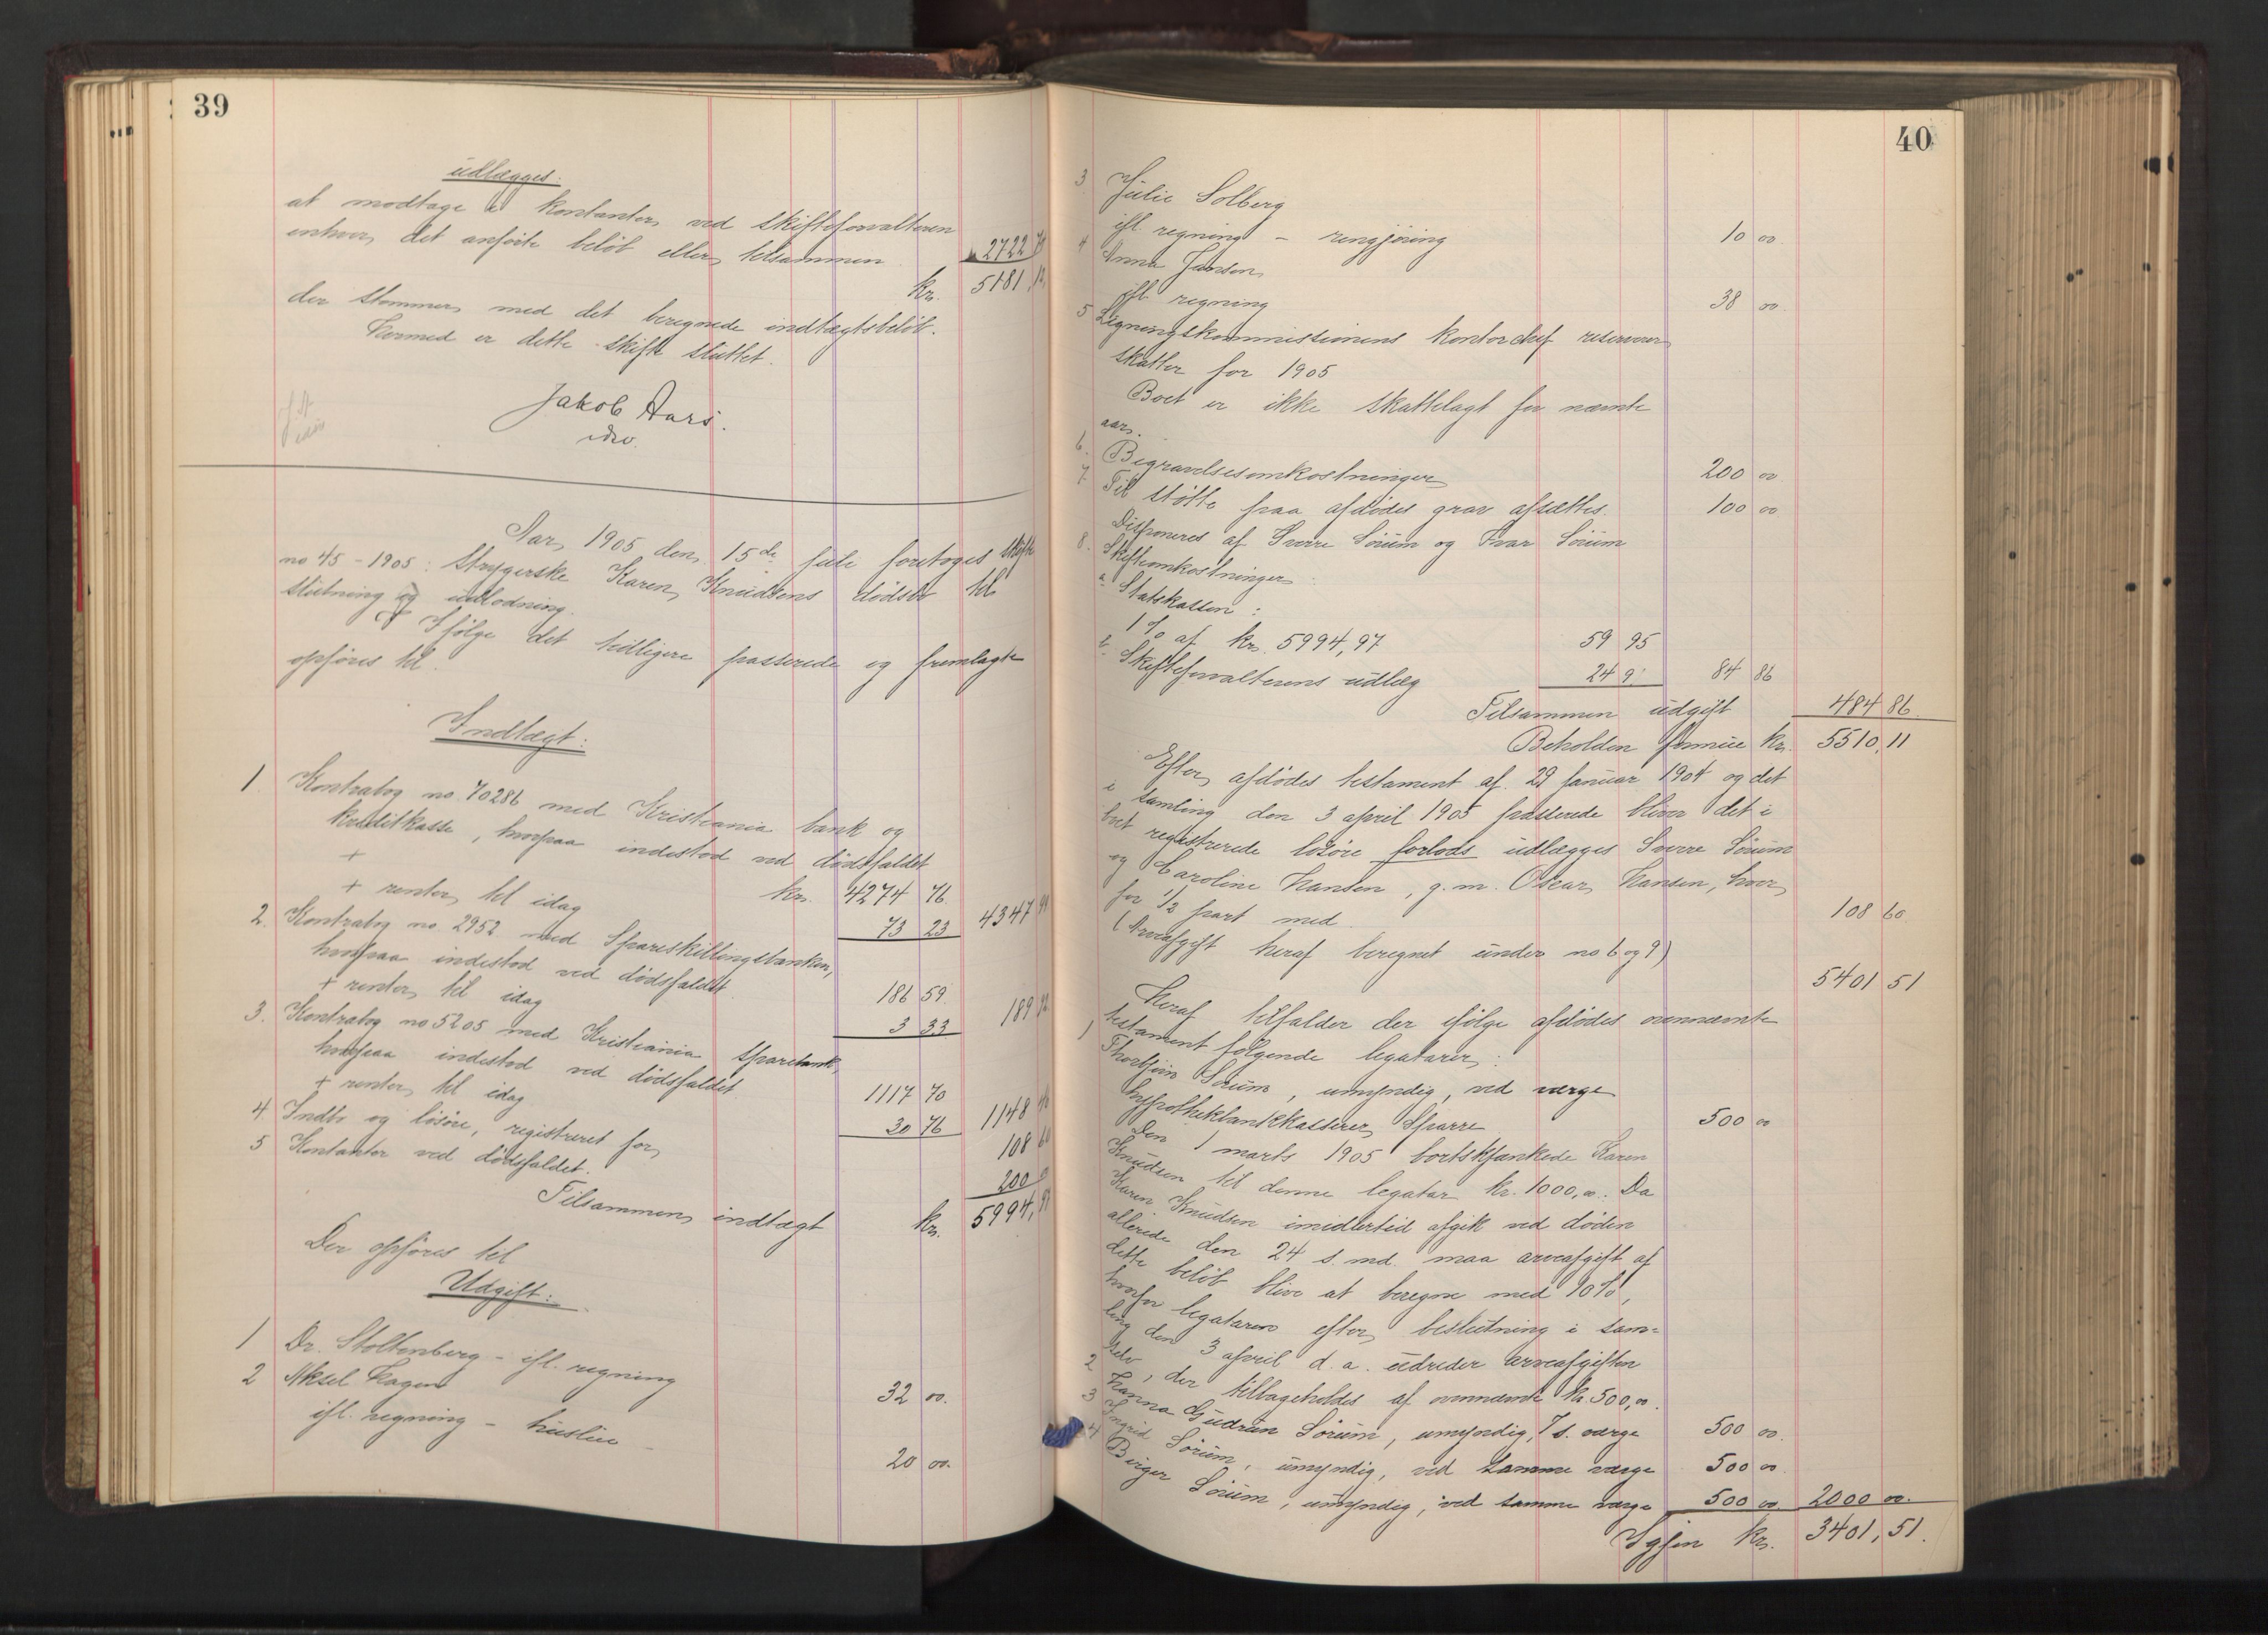 39
udlægges:
at modtage i kontanter ved skifteforvalteren
enhver det anførte beløb eller tilsammen 2722
kr. 5181,
der stemmer med det beregnede indtægtsbeløb.
Hermed er dette skifte sluttet.
Jakob Aars.
Aar 1905 den 15de juli foretoges skifte
no 45 - 1905: Strygerske Karen Knudsens dødsbo til
slutning og udlodning.
Ifølge det tidligere passerede og fremlagte
opføres til
Indtægt:
1. Kontrabog no 70286 med Kristiania bank og
kreditkasse, hvorpaa indestod ved dødsfaldet
+ kr. 4274 76
+ renter til idag 73 23 4347 99
2. Kontrabog no 2952 med Spareskillingsbanken,
hvorpaa indestod ved dødsfaldet 186 59
+ renter til idag 3 33 189 92
3. Kontrabog no 5205 med Kristiania Sparebank,
hvorpaa indestod ved dødsfaldet 1117 70
+ renter til idag 30 76 1148 46
4 Indbo og løsøre, registreret for 108 60
5 Kontanter ved dødsfaldet. 200 00
Tilsammen indtægt kr. 5994,97
Der opføres til
Udgift:
1 Dr. Stoltenberg - ifl. regning 32 00.
2 Aksel Hagen
ifl. regning - husleie 20 00.
40
3 Julie Solberg
ifl. regning - rengjøring 10 00.
4 Anna Jansen
ifl. regning 38 00.
5 Ligningskommissionens kontorchef reserverer
skatter for 1905
Boet er ikke skattelagt for nævnte
aar.
6. Begravelsesomkostninger 200 00
7. Til støtte paa afdødes grav afsættes. 100 00
Disponeres af Sverre Sørum og Ivar Sørum
8. Skifteomkostninger:
a. Statskassen:
1 % af kr. 5994,97 59 95
b. Skifteforvalterens udlæg 24 91 84 86
Tilsammen udgift 484 86.
Beholden formue kr. 5510,11
Efter afdødes testament af 29 januar 1904 og det
i samling den 3 april 1905 passerede bliver det i
boet registrerede løsøre forlods udlægges Sverre Sørum
og Caroline Hansen, g.m. Oskar Hansen, hver
for 1/2 part med 108 60
(Arveafgift heraf beregnet under no 6 og 9)
5401 51
Heraf tilfalder der ifølge afdødes ovennævnte
testament følgende legatarer:
1 Thorbjørn Sørum, umyndig, ved værge
hypothekbankkasserer Sparre 500 00
Den 1 marts 1905 bortskjænkede Karen
Knudsen til denne legatar kr. 1000,00. Da
Karen Knudsen imidlertid afgik ved døden
allerede den 24 s. md. maa arveafgift af
dette beløb blive at beregne med 10 %,
hvorfor legataren efter beslutning i sam-
ling den 3 april d.a. udreder arveafgiften
selv, der tilbageholdes af ovennævnte kr. 500,00.
2 Hanna Gudrun Sørum, umyndig, / s. værge 500 00.
3 Ingrid Sørum, umyndig, ved samme værge 500 00
4 Birger Sørum, umyndig, ved samme værge 500 00. 2000 00.
Igjen kr. 3401,51.